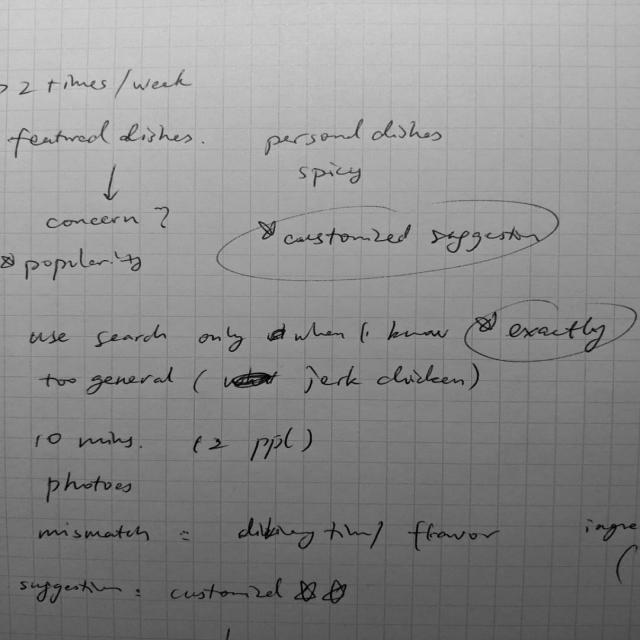 > 2 times/week
featured dishes.
personal dishes
spicy
concern?
customized suggestion
popularity
use search only when I know exactly
too general ( jerk chicken)
10 mins. (2 ppl)
photoes
mismatch = time/ flavor
ingre
suggestion: customized